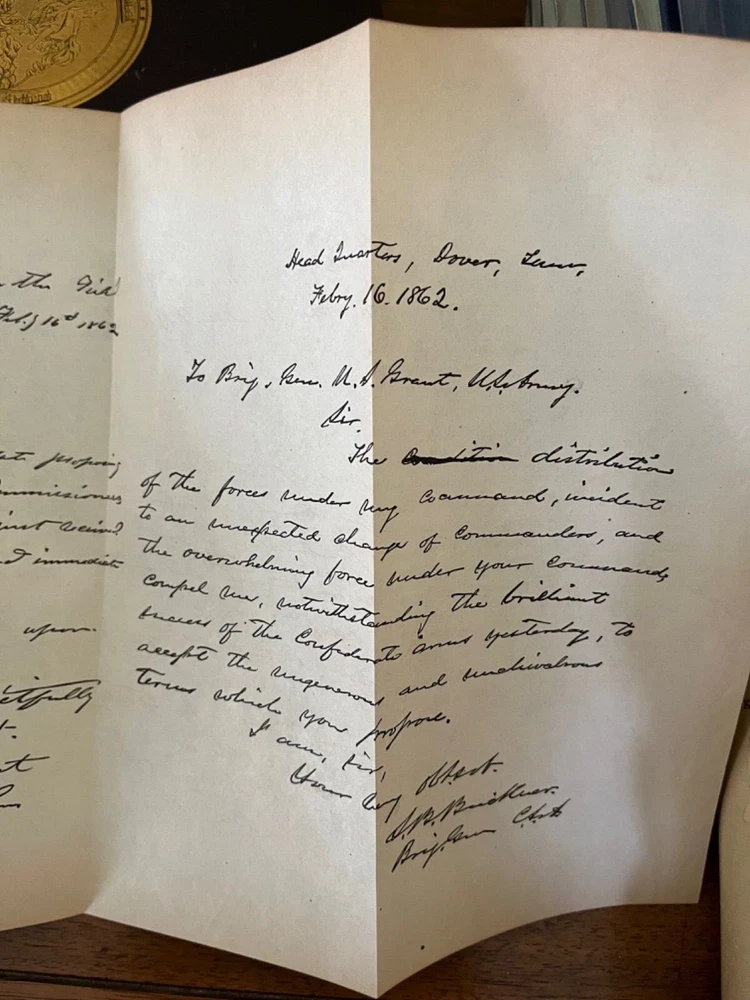 the Field
Feb.y 16th 1862
proposing
Commissioners
just received.
immediate
upon
Head Quarters, Dover, Tenn,
Febry. 16. 1862.
To Brig. Gen. U. S. Grant, U.S. Army.
Sir,
The condition distribution
of the forces under my command, incident
to an unexpected change of commanders, and
the overwhelming force under your command,
compel me, notwithstanding the brilliant
success of the Confederate arms yesterday, to
accept the ungenerous and unchivalrous
terms which you propose.
I am, Sir,
Your very obt. svt.
S. B. Buckner.
Brig. Gen C.S.A